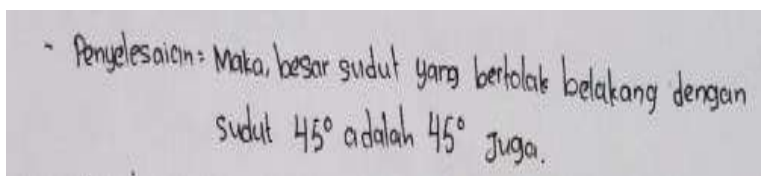 - Penyelesaian: Maka, besar sudut yang bertolak belakang dengan
sudut 45° adalah 45° Juga.